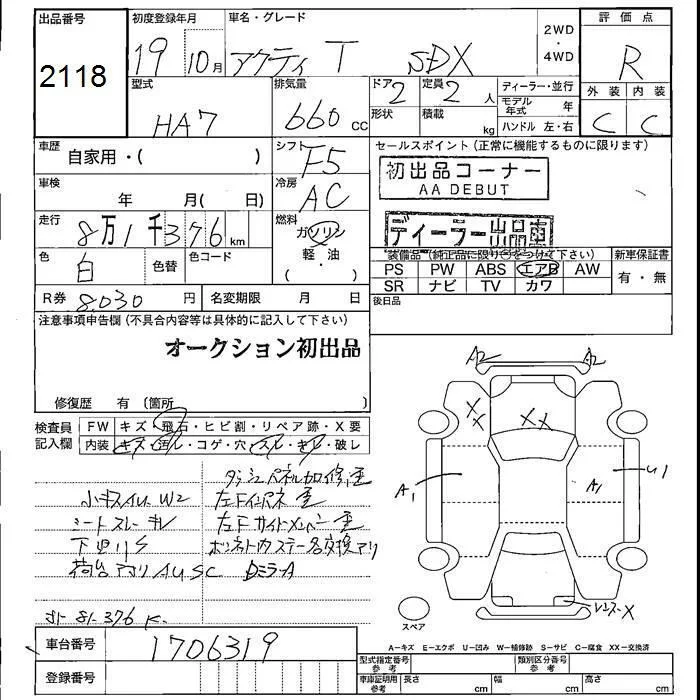 出品番号 初度登録年月 車名・グレード 2WD・4WD 評価点
2118 19 10月 アクティ T SDX R
型式 排気量 ドア 定員 ディーラー・並行 外装 内装
HA7 660 CC 2 2 人 モデル年式 年 C C
形状 積載 kg ハンドル 左・右
車歴 自家用・( ) シフト F5 セールスポイント(正常に機能するものに限ります)
初出品コーナー
AA DEBUT
車検 年 月( 日) 冷房 AC
走行 8万1千376km 燃料 ガソリン
ディーラー出品車
軽・油
( )
色 白 色替 色コード
装備品(純正品に限り○をつけて下さい) 新車保証書
PS PW ABS エアB AW 有・無
SR ナビ TV カワ
R券 8,030 円 名変期限 月 日 後日品
注意事項申告欄(不具合内容等は具体的に記入して下さい)
オークション初出品
修復歴 有(箇所 )
検査員記入欄 FW キズ・飛石・ヒビ割・リペア跡・X要
内装 キズ・汚レ・コゲ・穴・スレ・キレ・破レ
ダッシュパネル加修、歪
小キズ W2 左Fインパネ 歪
シートスレ キレ 左Fサイドメンバー 歪
下廻りS ボンネット 交換アリ
荷台 アオリ AUSC DミラーA
81,376 K
A2 A2
XX
XX
A1 A1 U1
X
スペア
車台番号 1706319
登録番号
A−キズ E−エクボ U−凹み W−補修跡 S−サビ C−腐食 XX−交換済
型式指定番号 参考 類別区分番号 参考
車庫証明用 参考 長さ cm 幅 cm 高さ cm